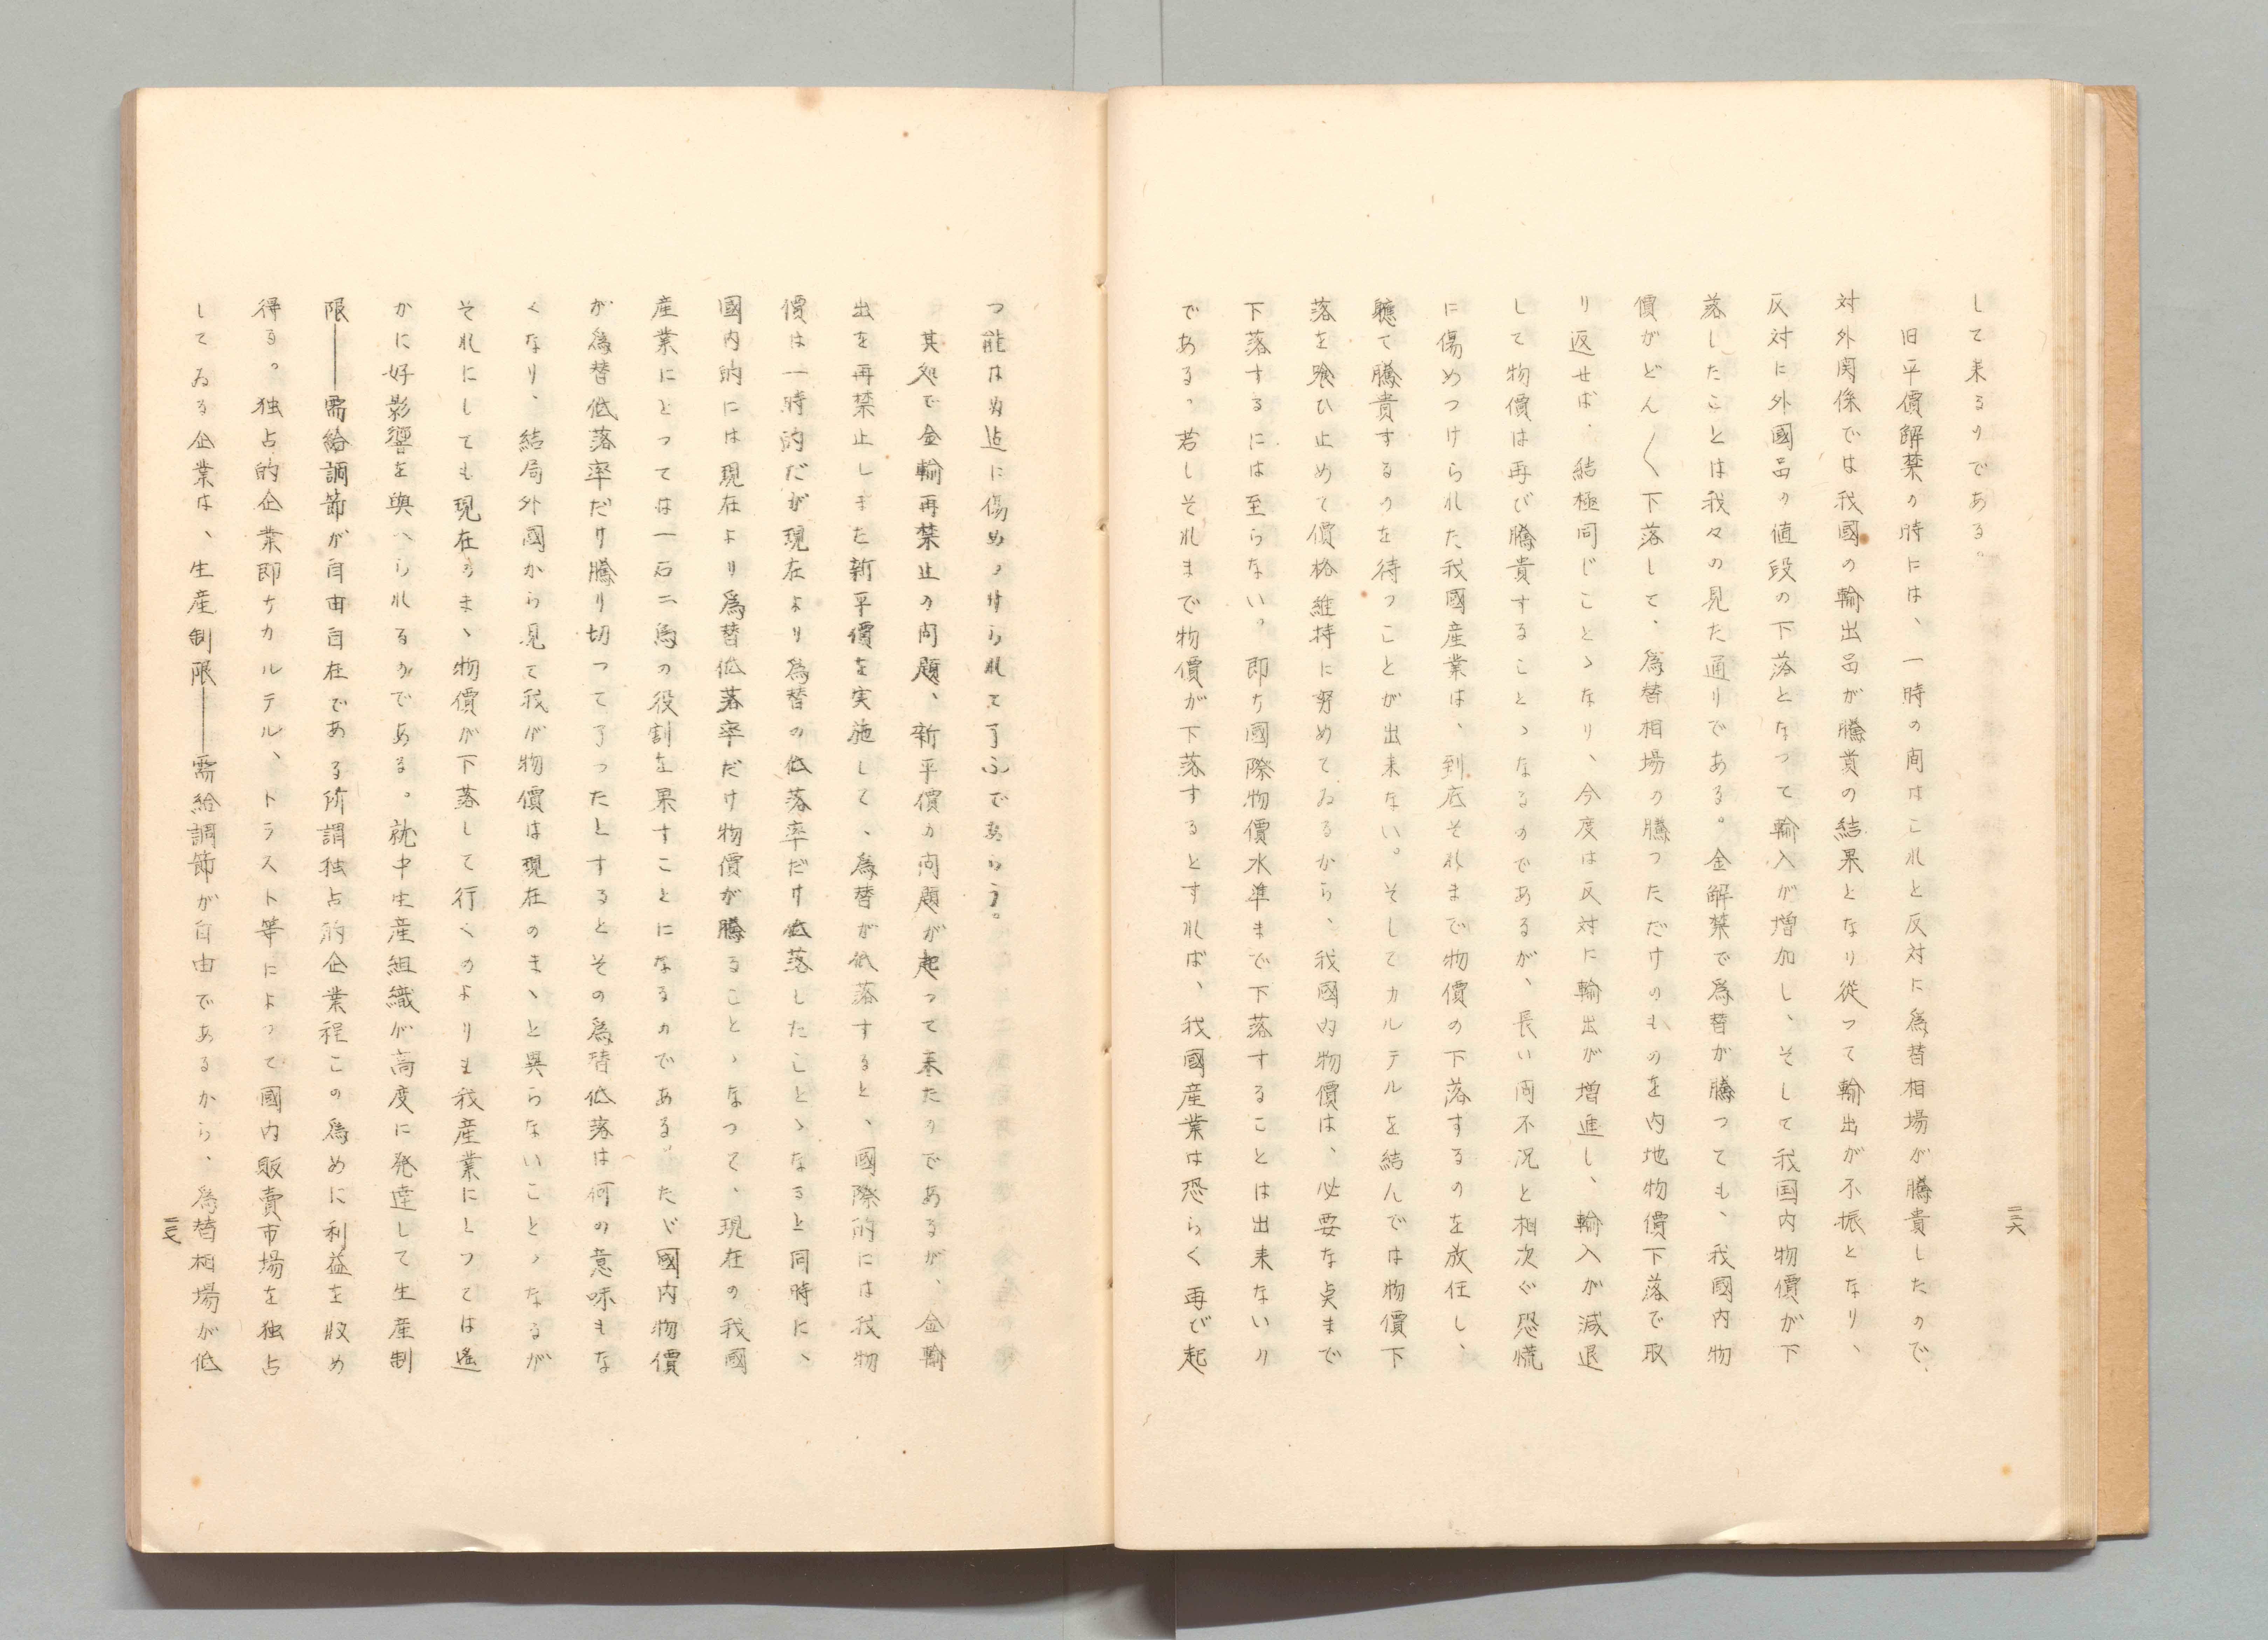 して来るのである。
旧平價解禁の時には、一時の間はこれと反対に為替相場が騰貴したので、
対外関係では我國の輸出品が騰貴の結果となり従つて輸出が不振となり、
反対に外國品の値段の下落となつて輸入が増加し、そして我国内物價が下
落したことは我々の見た通りである。金解禁で為替が騰つても、我國内物
價がどん〱下落して、為替相場の騰つただけのものを内地物價下落で取
り返せば、結極同じことゝなり、今度は反対に輸出が増進し、輸入が減退
して物價は再び騰貴することゝなるのであるが、長い間不況と相次ぐ恐慌
に傷めつけられた我國産業は、到底それまで物價の下落するのを放任し、
軈て騰貴するのを待つことが出来ない。そしてカルテルを結んでは物價下
落を喰ひ止めて價格維持に努めてゐるから、我國内物價は、必要な点まで
下落するには至らない。即ち國際物價水準まで下落することは出来ないの
である。若しそれまで物價が下落するとすれば、我國産業は恐らく再び起
二三六
つ能はぬ迄に傷めつけられて了ふであらう。
其処で金輸再禁止の問題、新平價の問題が起つて来たのであるが、金輸
出を再禁止しまた新平價を実施して、為替が低落すると、國際的には我物
價は一時的だが現在より為替の低落率だけ低落したことゝなると同時に、
國内的には現在より為替低落率だけ物價が騰ることゝなつて、現在の我國
産業にとつては一石二鳥の役割を果すことになるのである。たゞ國内物價
が為替低落率だけ騰り切つて了つたとするとその為替低落は何の意味もな
くなり、結局外國から見て我が物價は現在のまゝと異らないことゝなるが
それにしても現在のまゝ物價が下落して行くのよりも我産業にとつては遙
かに好影響を與へられるのである。就中生産組織が高度に発達して生産制
限――需給調節が自由自在である所謂独占的企業程この為めに利益を収め
得る。独占的企業即ちカルテル、トラスト等によつて國内販賣市場を独占
してゐる企業は、生産制限――需給調節が自由であるから、為替相場が低
二三七